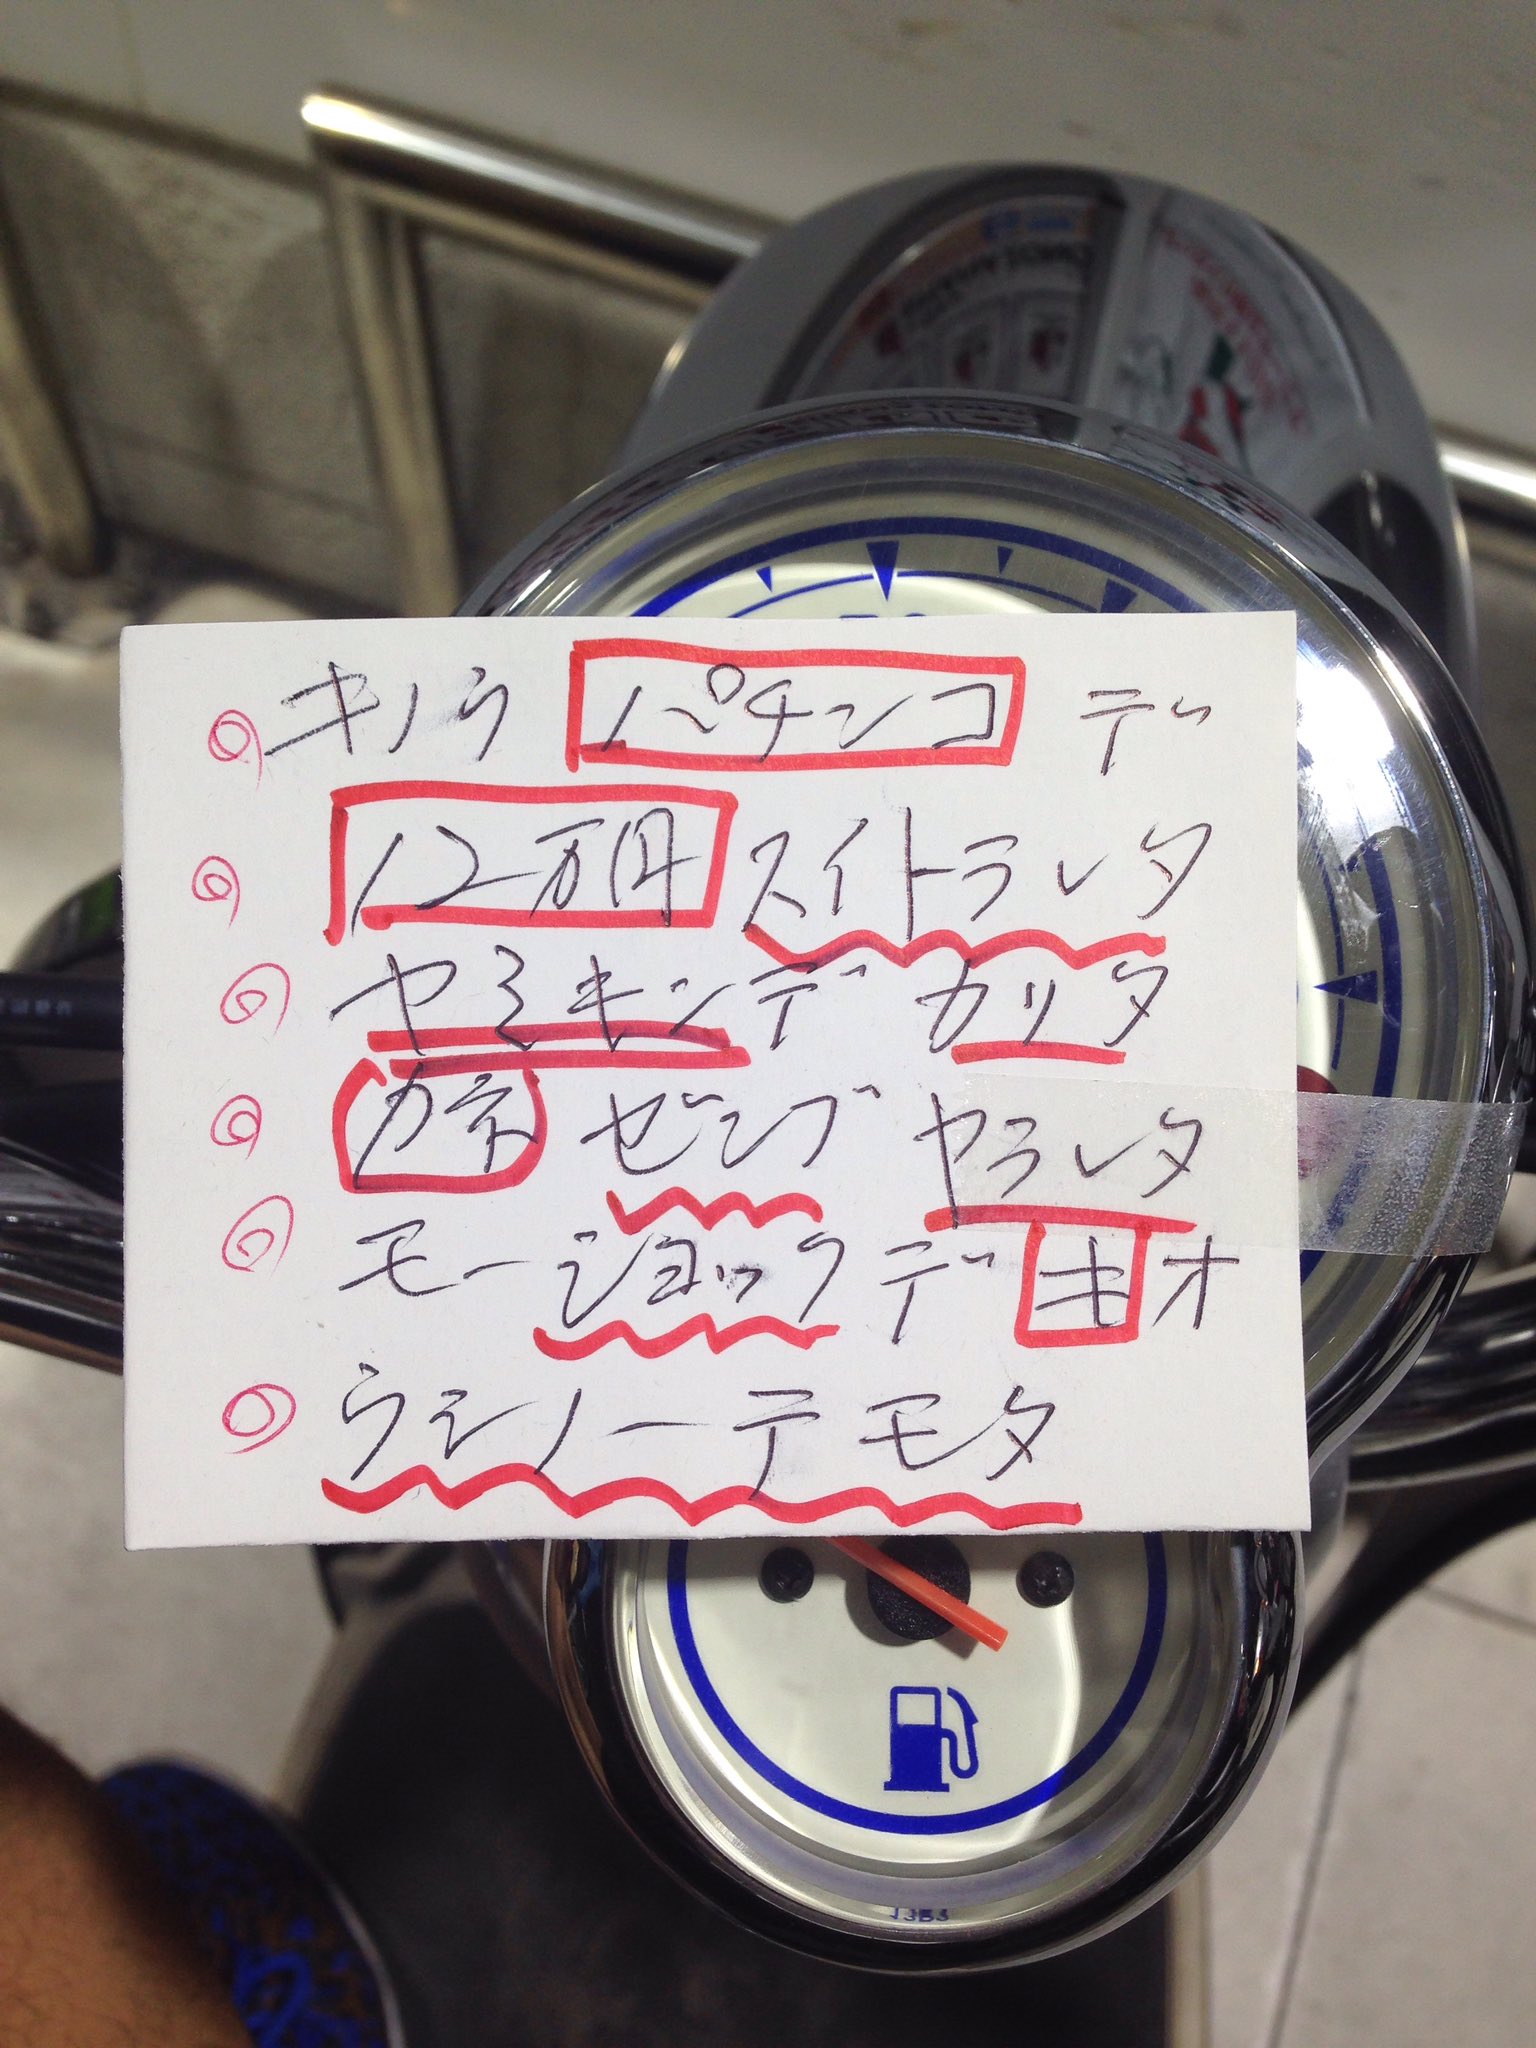 キノウ パチンコ デ
12万円 スイトラレタ
ヤミキンデ カリタ
カネ ゼンブ ヤラレタ
モーショックデ キオ
ウシノーテモタ
1353